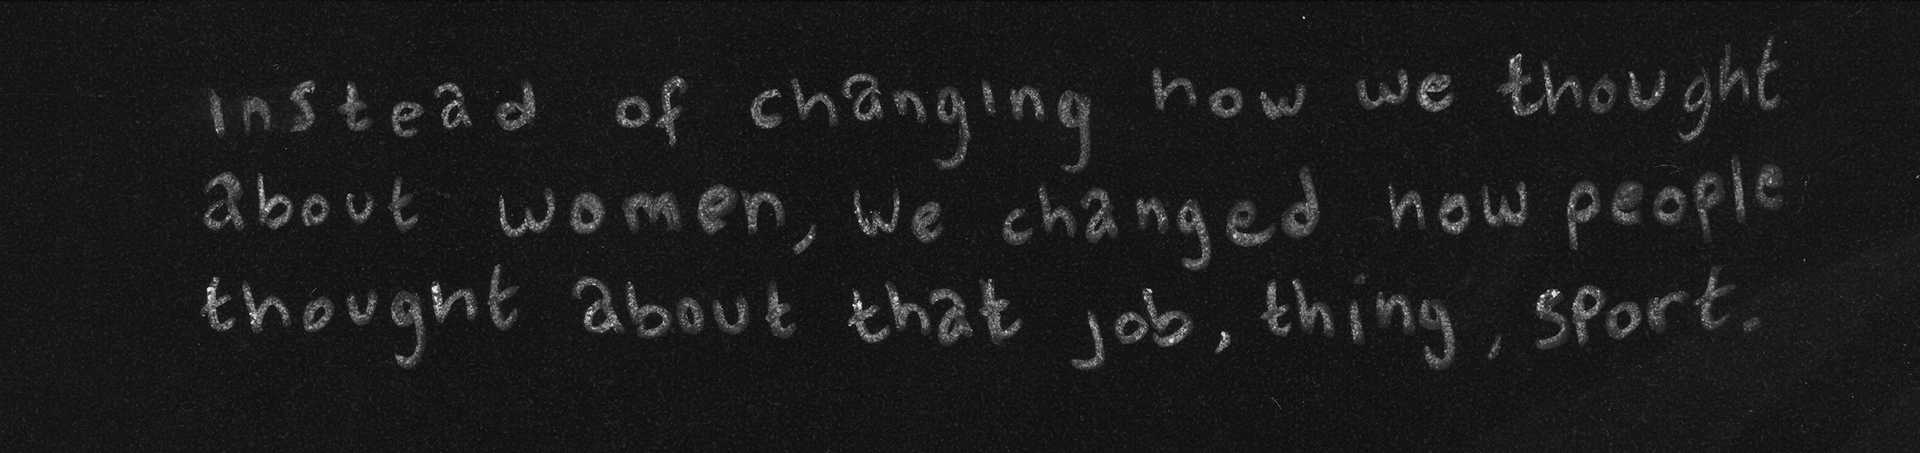 Instead of changing how we thought
about women, we changed how people
thought about that job, thing, sport.